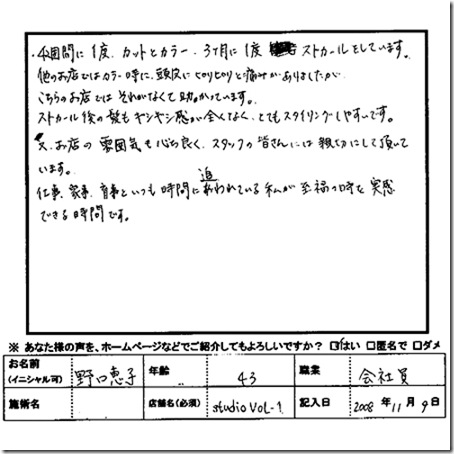 ・4週間に1度、カットとカラー、3ヶ月に1度 ストカールをしています。
他のお店ではカラー時に、頭皮にヒリヒリと痛みがありましたが、
こちらのお店ではそれがなくて助かっています。
ストカール後の髪もキシキシ感が全くなく、とてもスタイリングしやすいです。
又、お店の雰囲気も心地良く、スタッフの皆さんには親切にして頂いて
います。
仕事、家事、育事といつも時間に追われている私が至福の時を実感
できる時間です。
※ あなた様の声を、ホームページなどでご紹介してもよろしいですか? ☑はい □匿名で □ダメ
お名前 (イニシャル可) 野口恵子 年齢 43 職業 会社員
施術名 店舗名(必須) studio VOL-1 記入日 2008年11月9日